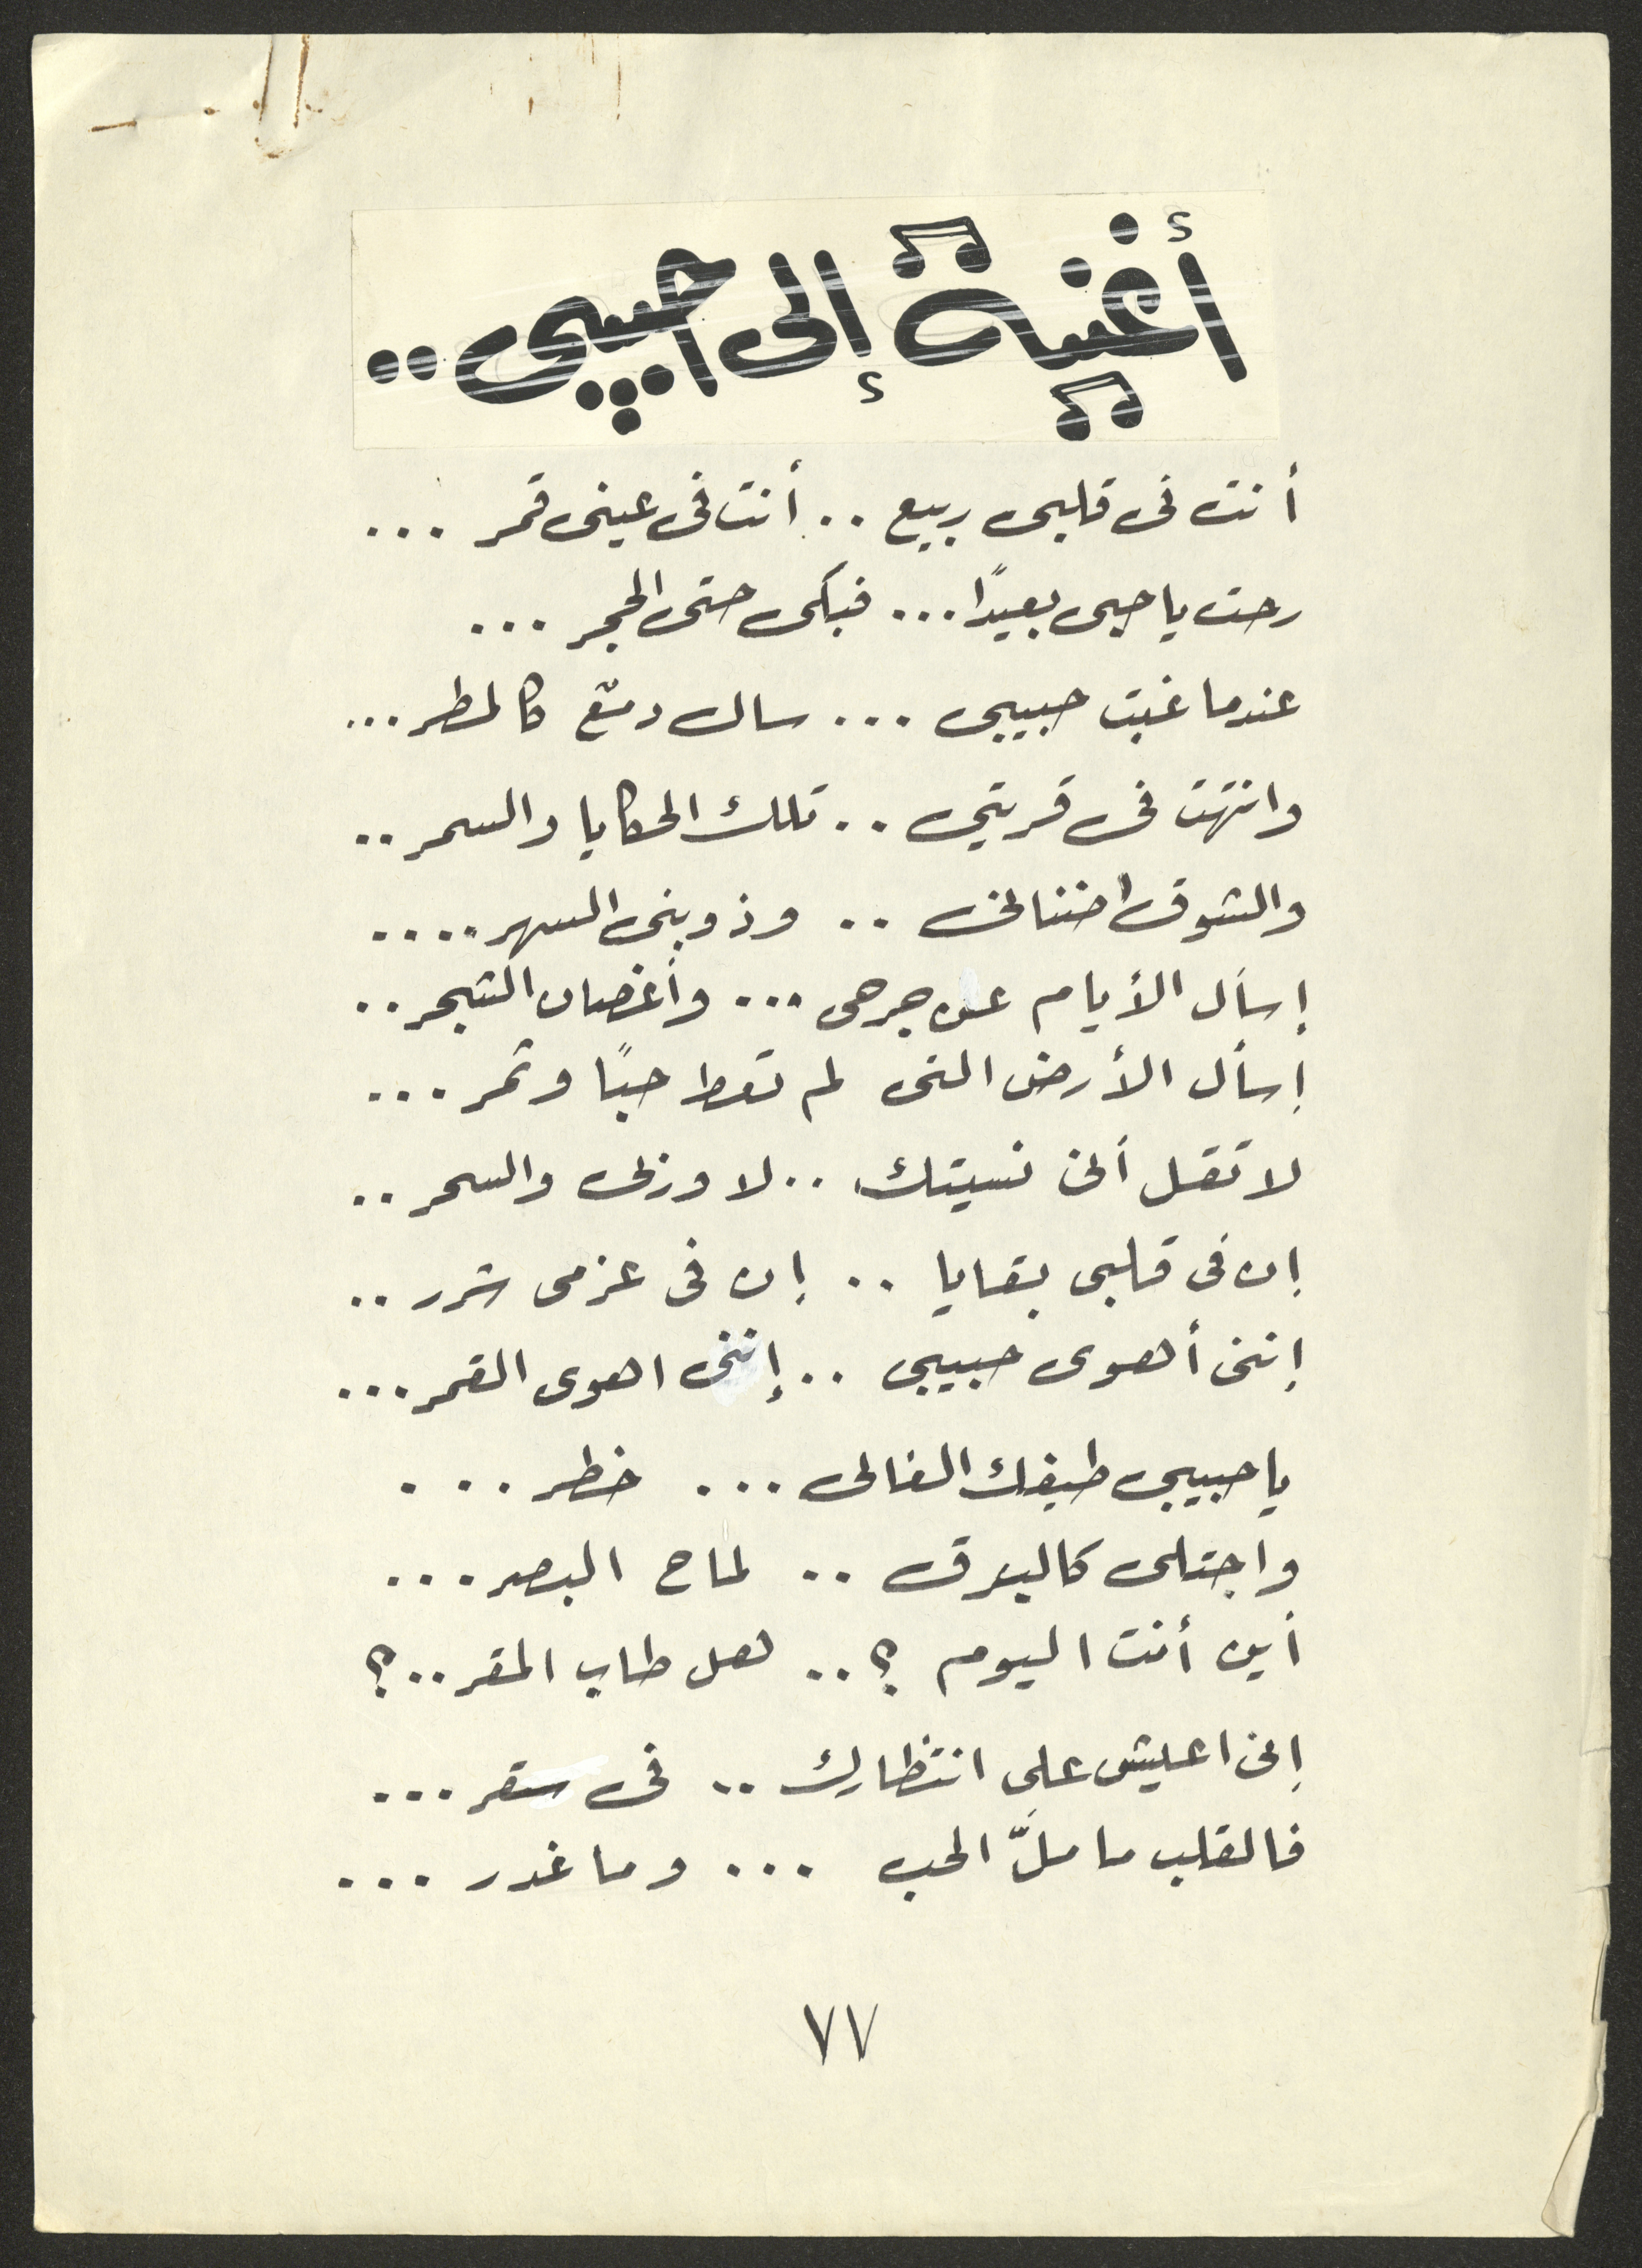 أغنية إلى حبيبى ..
أنت فى قلبى ربيع .. أنت فى عينى قمر ...
رحت يا حبى بعيدًا ... فبكى حتى الحجر ...
عندما غبت حبيبى ... سال دمع كالمطر ...
وانتهت فى قريتي .. تلك الحكايا والسمر ..
والشوق اضنانى .. وذوبنى السهر ....
إسأل الأيام عن جرحى ... وأغصان الشجر ..
إسأل الأرض التى لم تعط حبًا وثمر ...
لا تقل أنى نسيتك .. لا وربى والسحر ..
إن فى قلبى بقايا .. إن فى عزمى شرر ..
إننى أهوى حبيبى .. إننى اهوى القمر ...
يا حبيبى طيفك الغالى ... خطر ...
واجتلى كالبرق .. لماح البصر ...
أين أنت اليوم ؟ .. هل طاب المقر .. ؟
إنى اعيش على انتظارك .. فى سقر ...
فالقلب ما ملَّ الحب ... وما غدر ...
٧٧